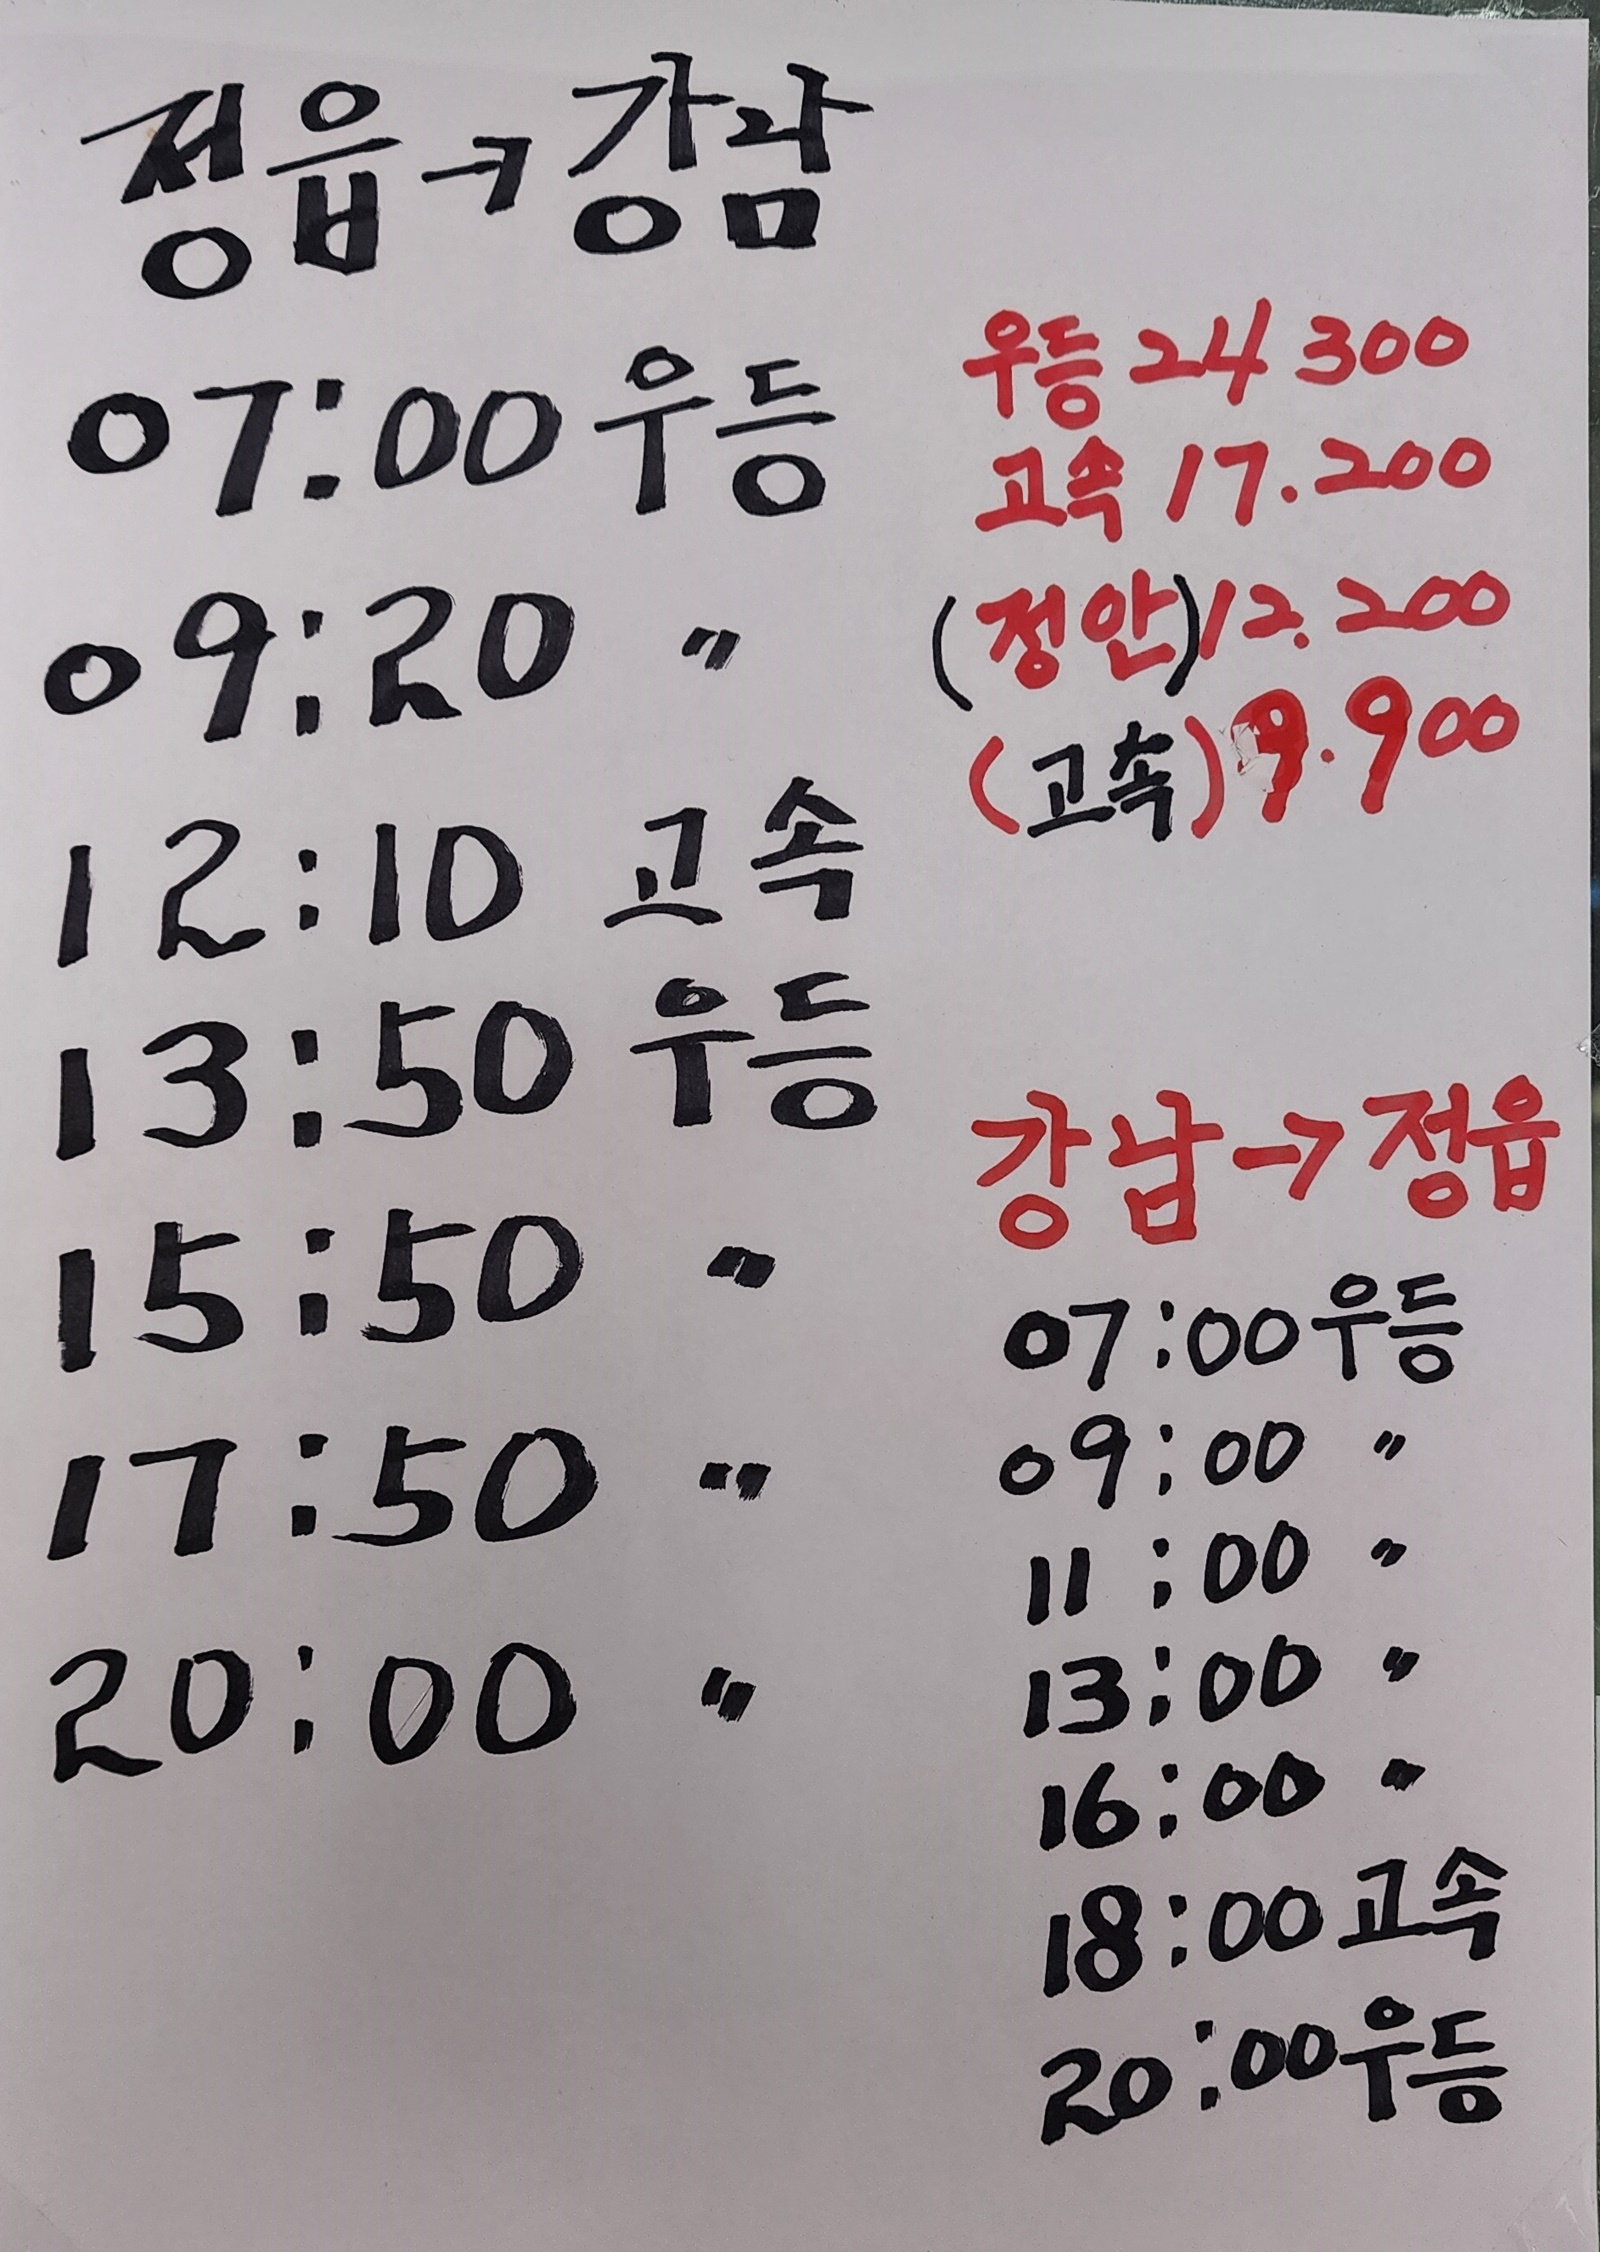 정읍→강남
07:00 우등
09:20 〃
12:10 고속
13:50 우등
15:50 〃
17:50 〃
20:00 〃
우등 24 300
고속 17.200
(정안)12.200
(고속)9.900
강남→정읍
07:00 우등
09:00 〃
11:00 〃
13:00 〃
16:00 〃
18:00 고속
20:00 우등